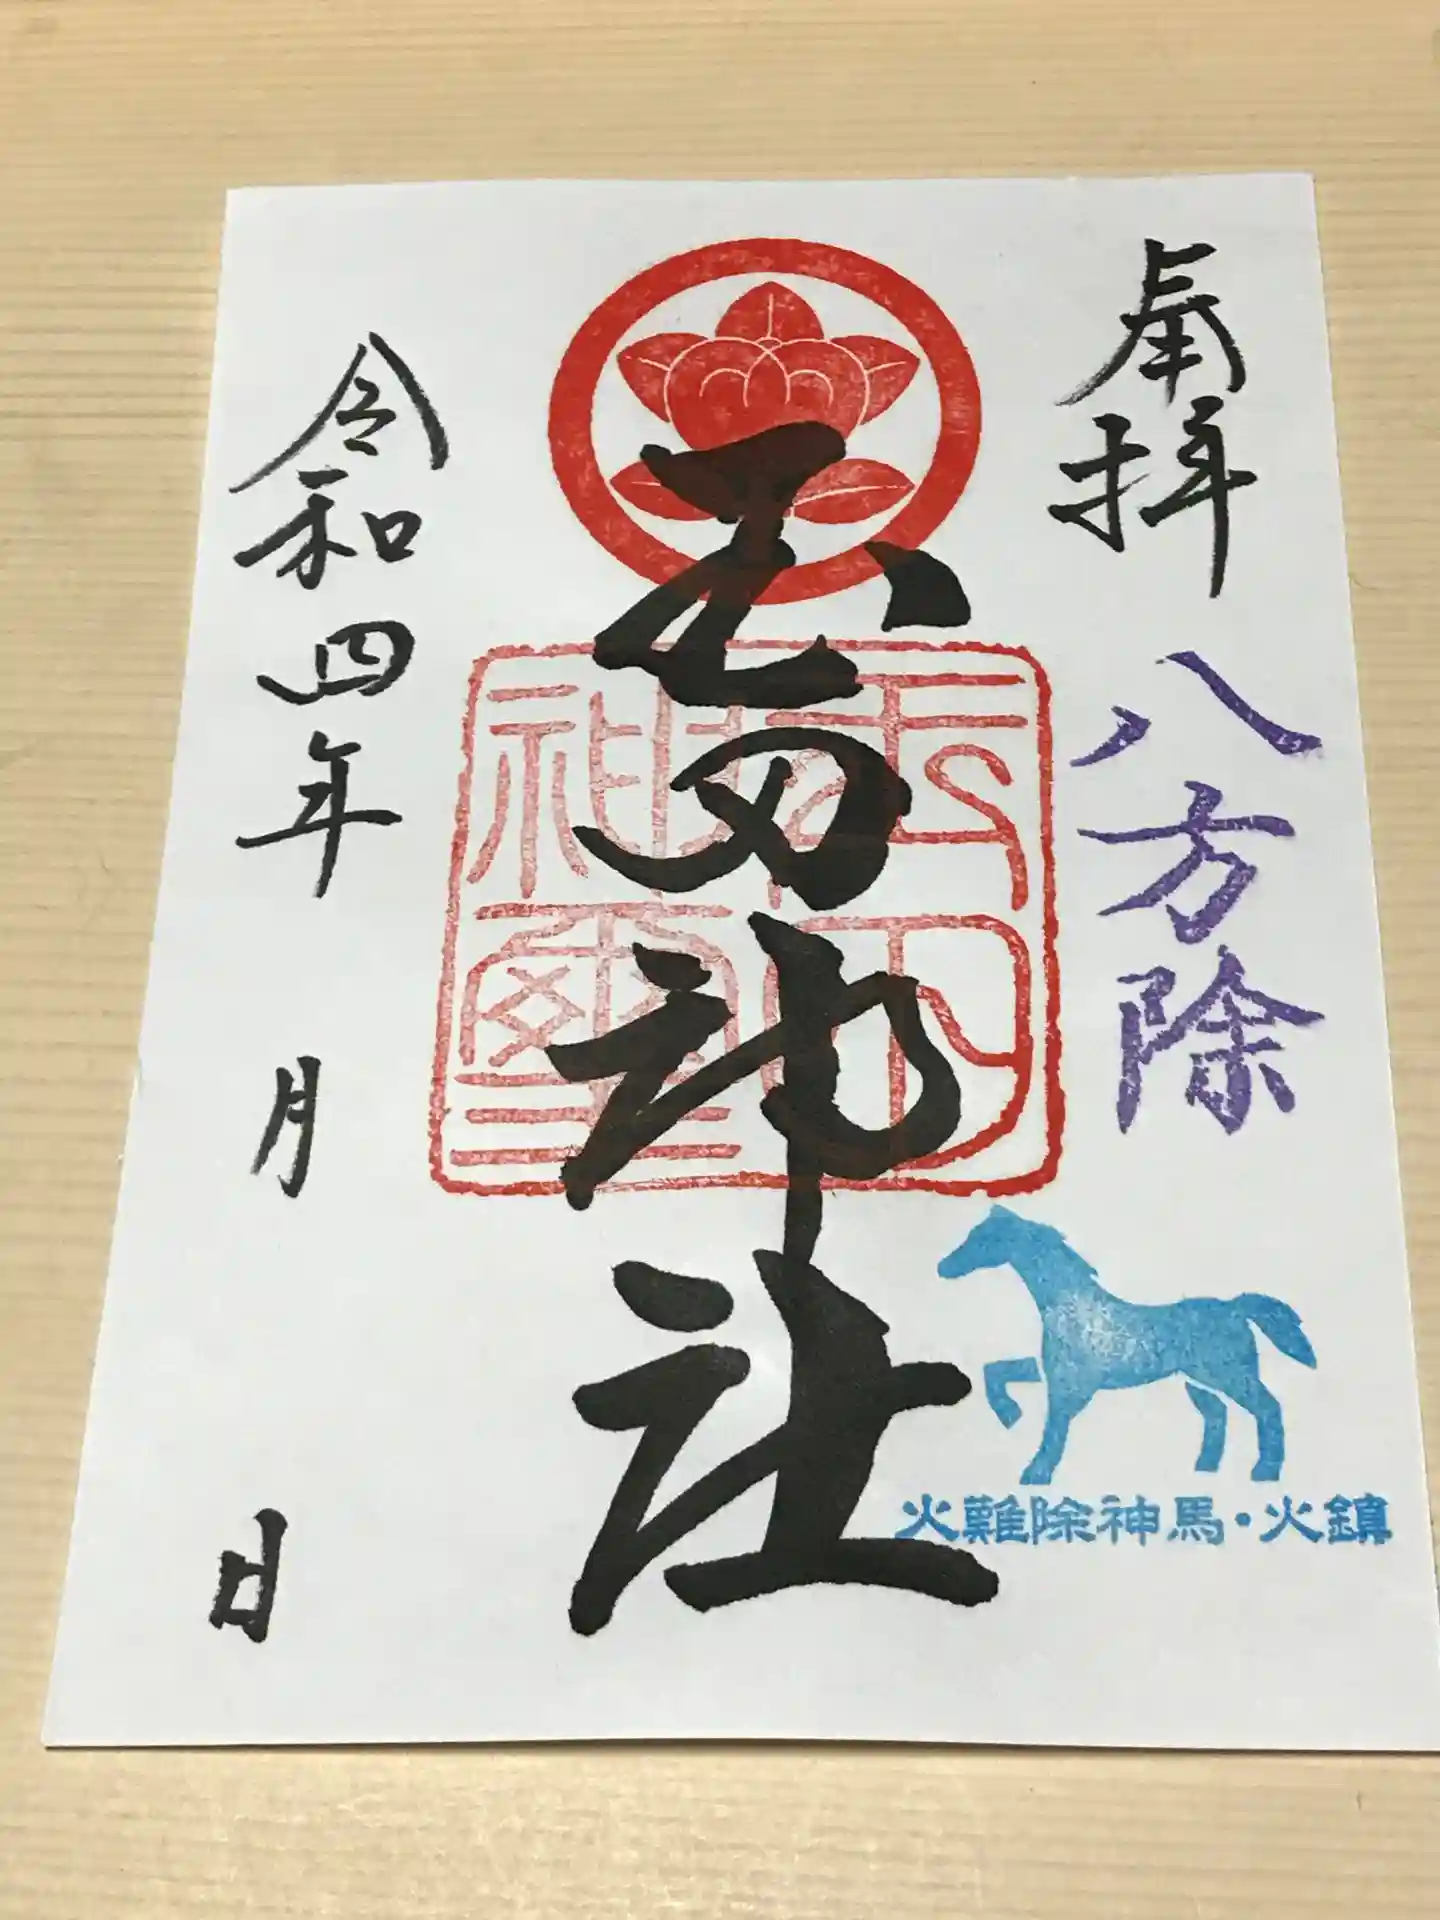 奉拝
八方除
火難除神馬・火鎮
玉田神社
玉田神璽
令和四年 月 日